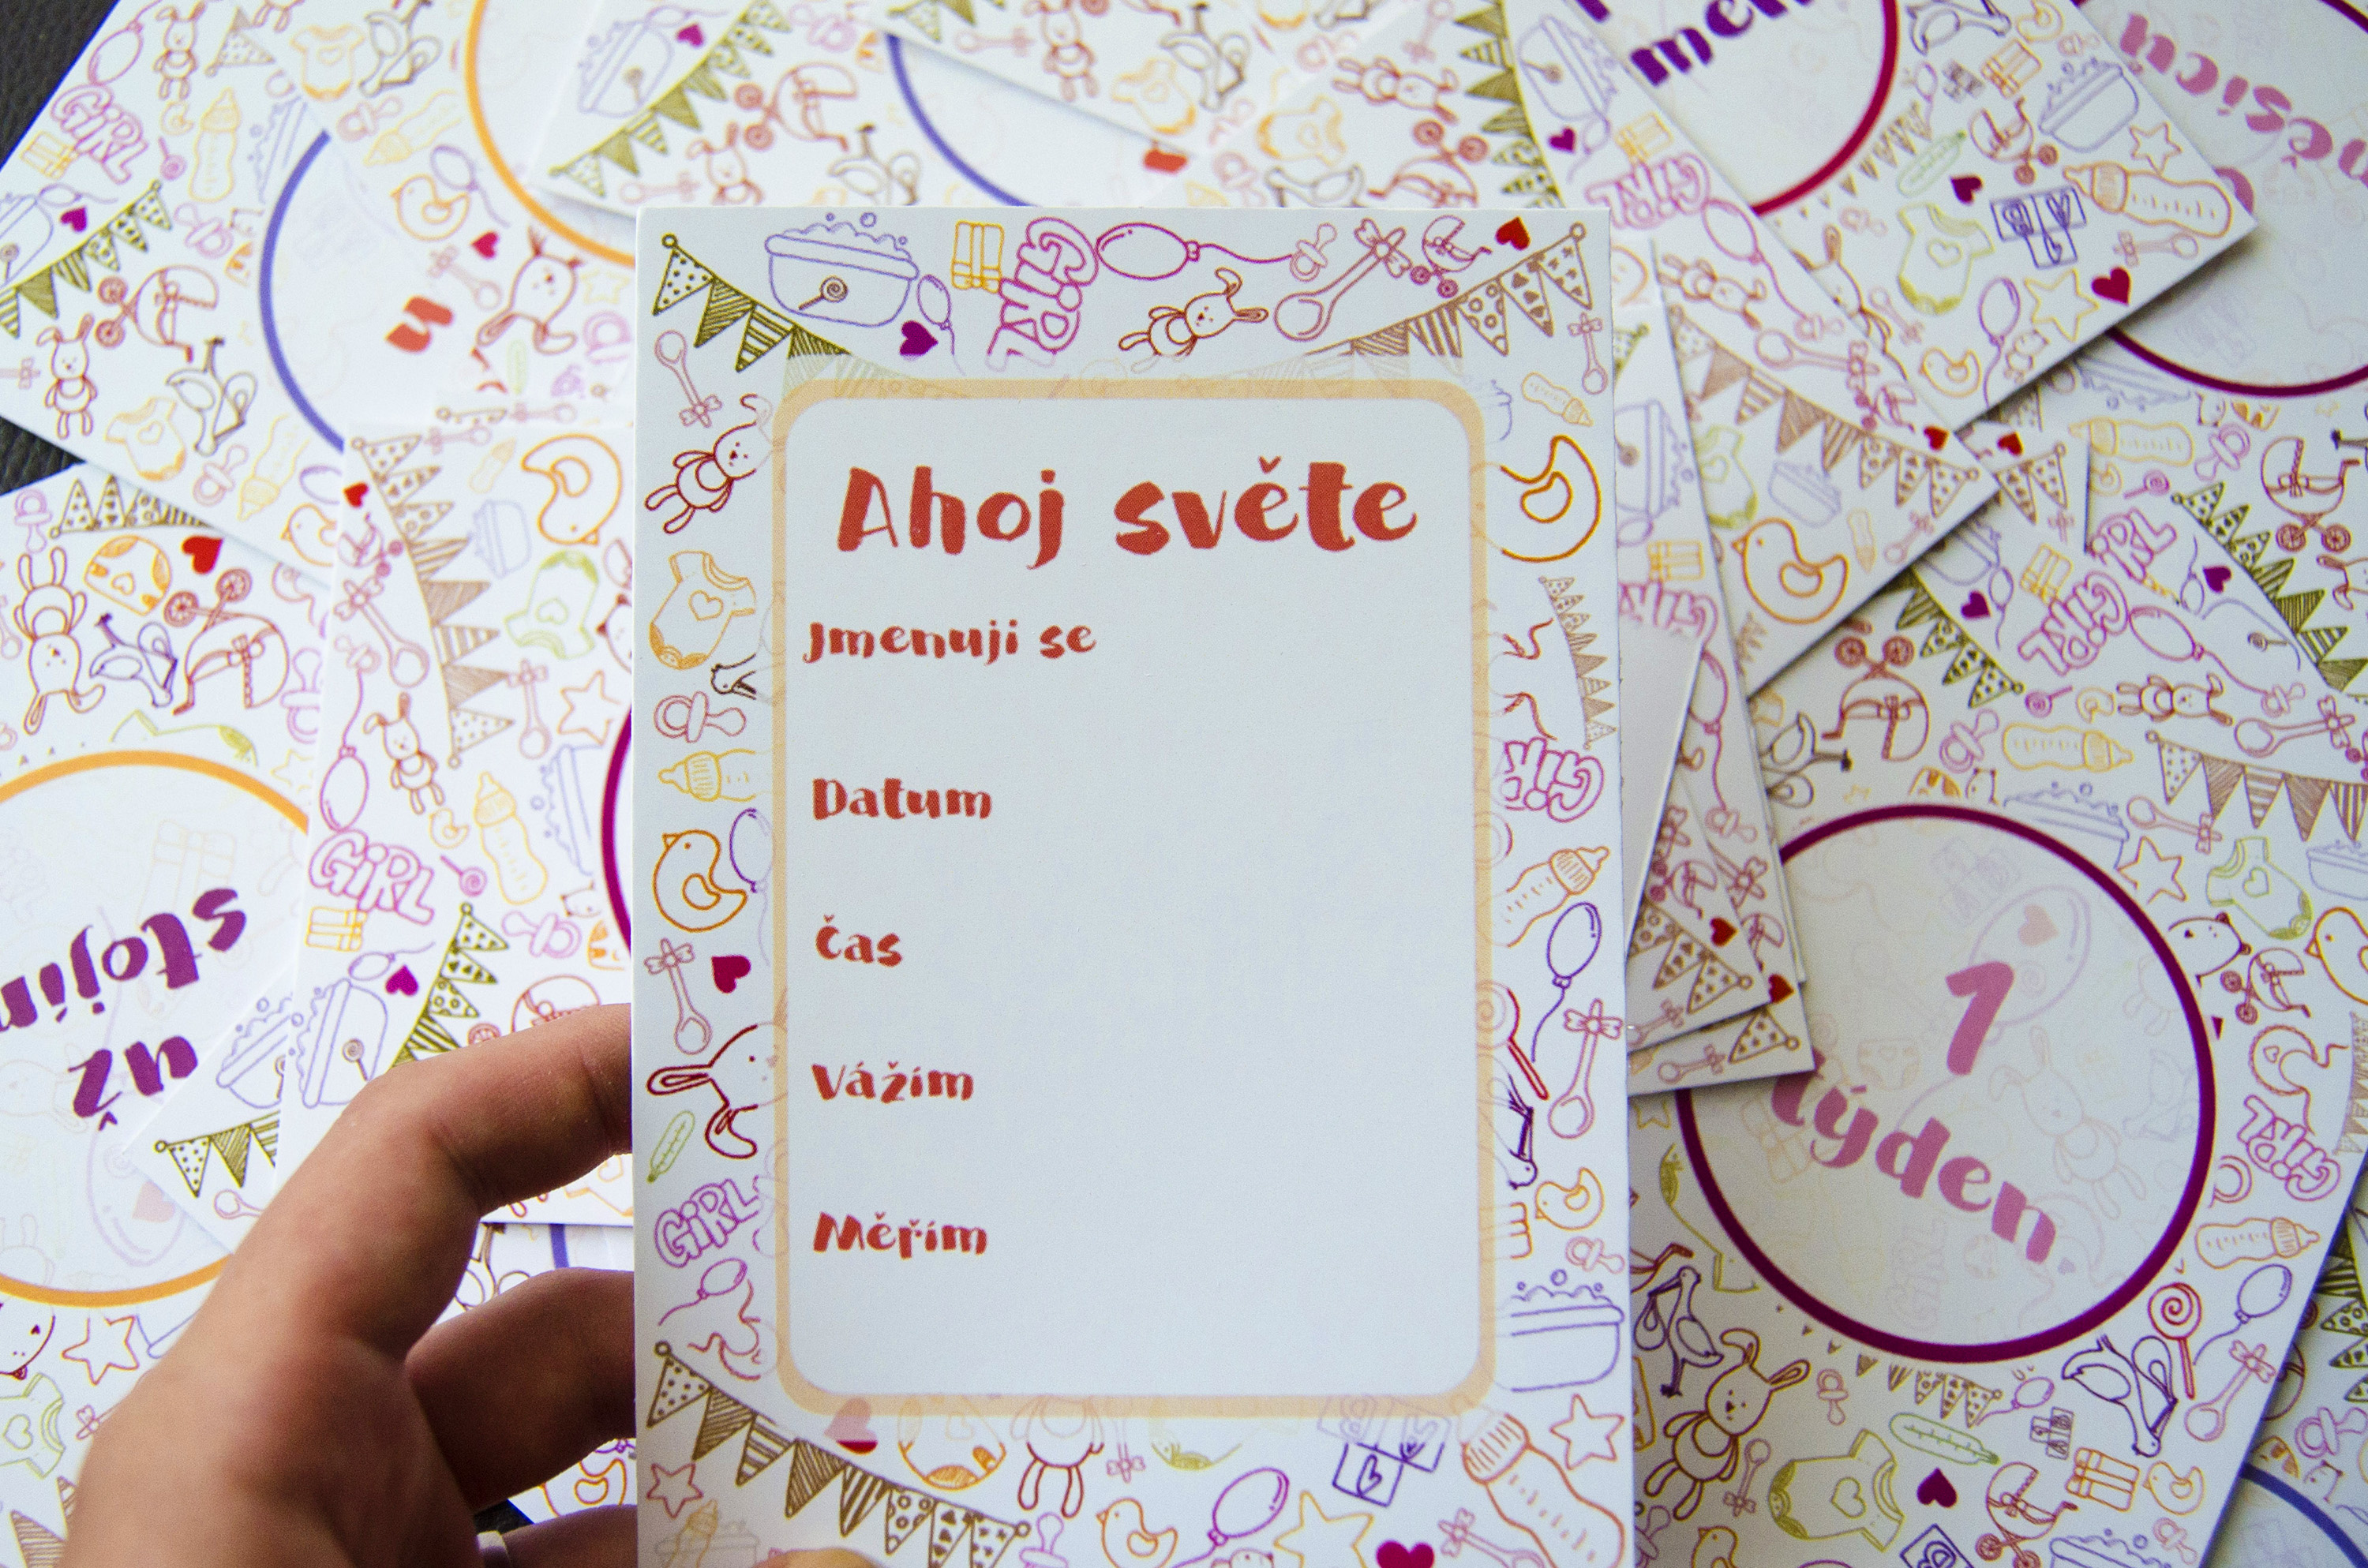 Ahoj světe
Jmenuji se
Datum
Čas
Vážím
Měřím
1
týden
už
stojím
GiRL
GiRL
GiRL
GiRL
GiRL
GiRL
GiRL
GiRL
GiRL